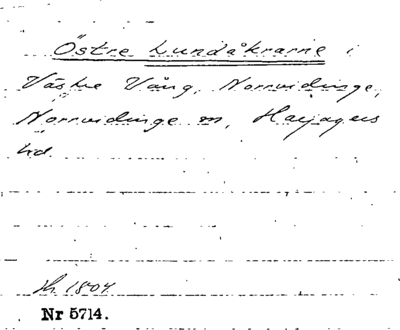 Östre Lundåkrarne i
Västre Vång, Norrvidinge,
Norrvidinge sn, Harjagers
hd.
Sk 1804
Nr 5714.